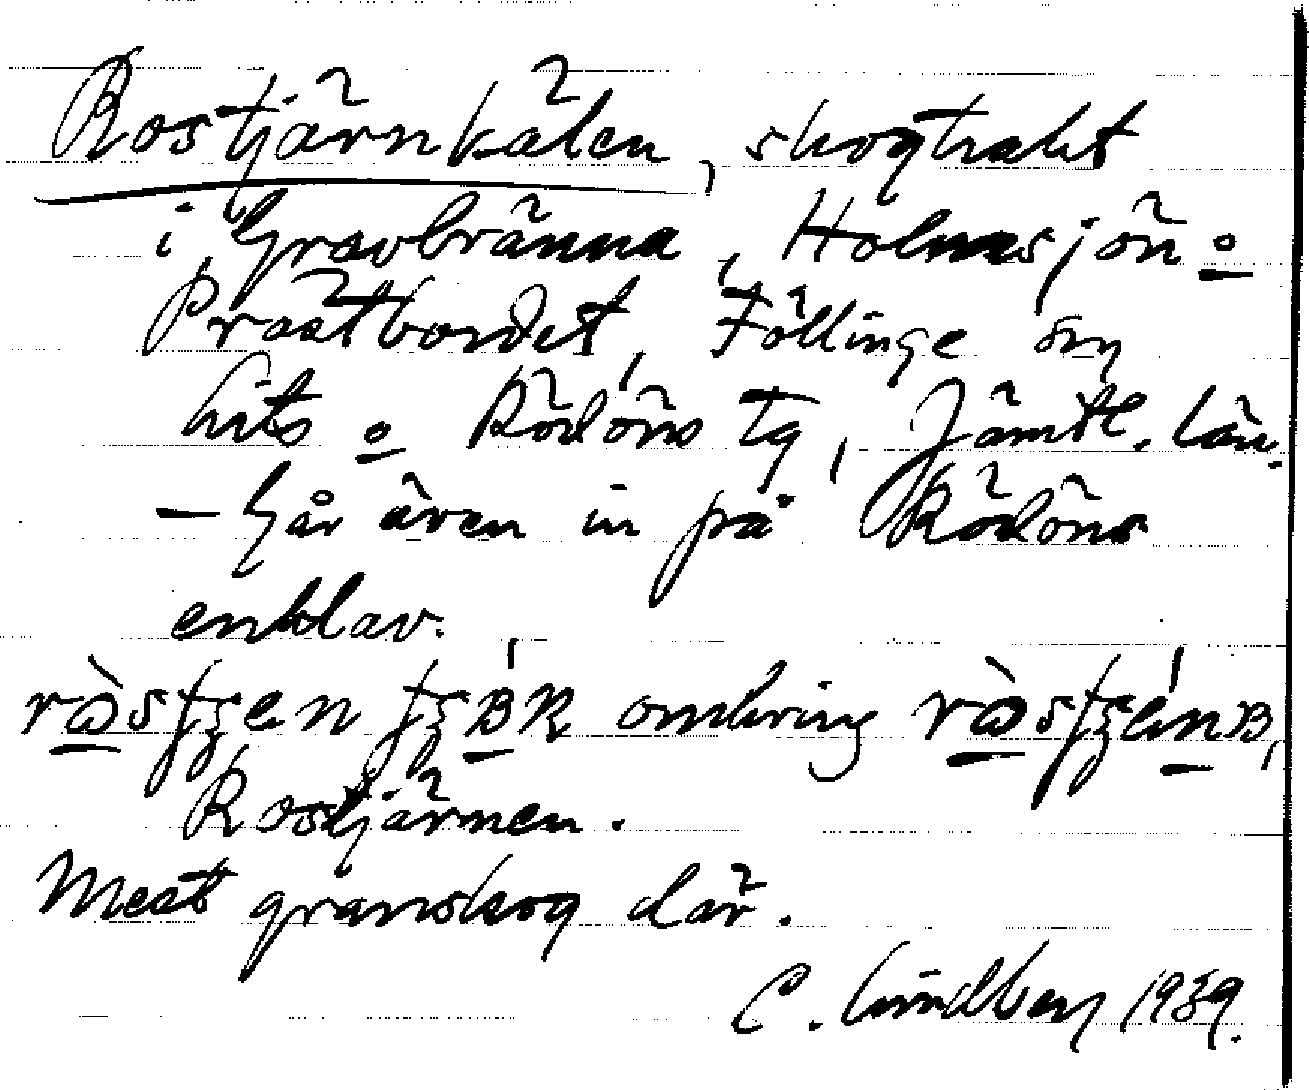 Rostjärnkälen, skogtrakt
i Gravbränna, Holmsjön o
Prästbordet, Föllinge sn
Lits o Rödöns tg, Jämtl. län.
– Går även in på Rödöns
enklav.
omkring
Rostjärnen.
Mest granskog där.
C. Lindberg 1939.